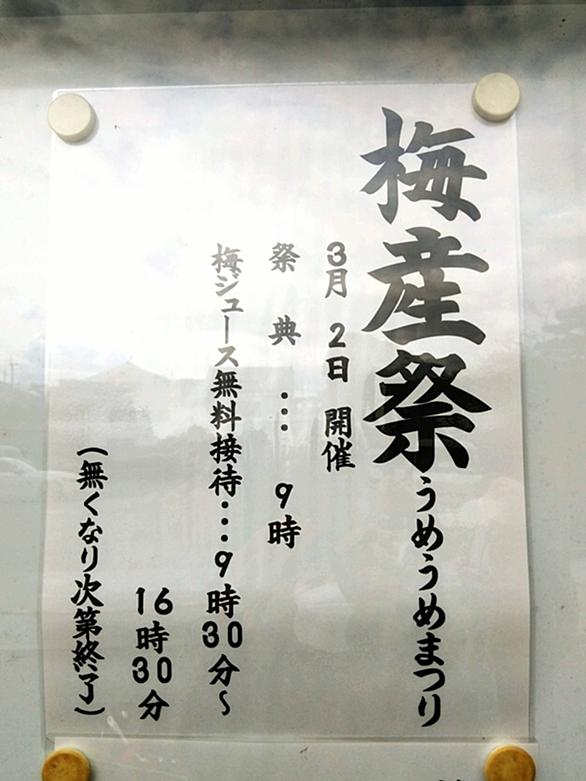 梅産祭うめうめまつり
3月2日 開催
祭典…9時
梅ジュース無料接待…9時30分~
16時30分
(無くなり次第終了)